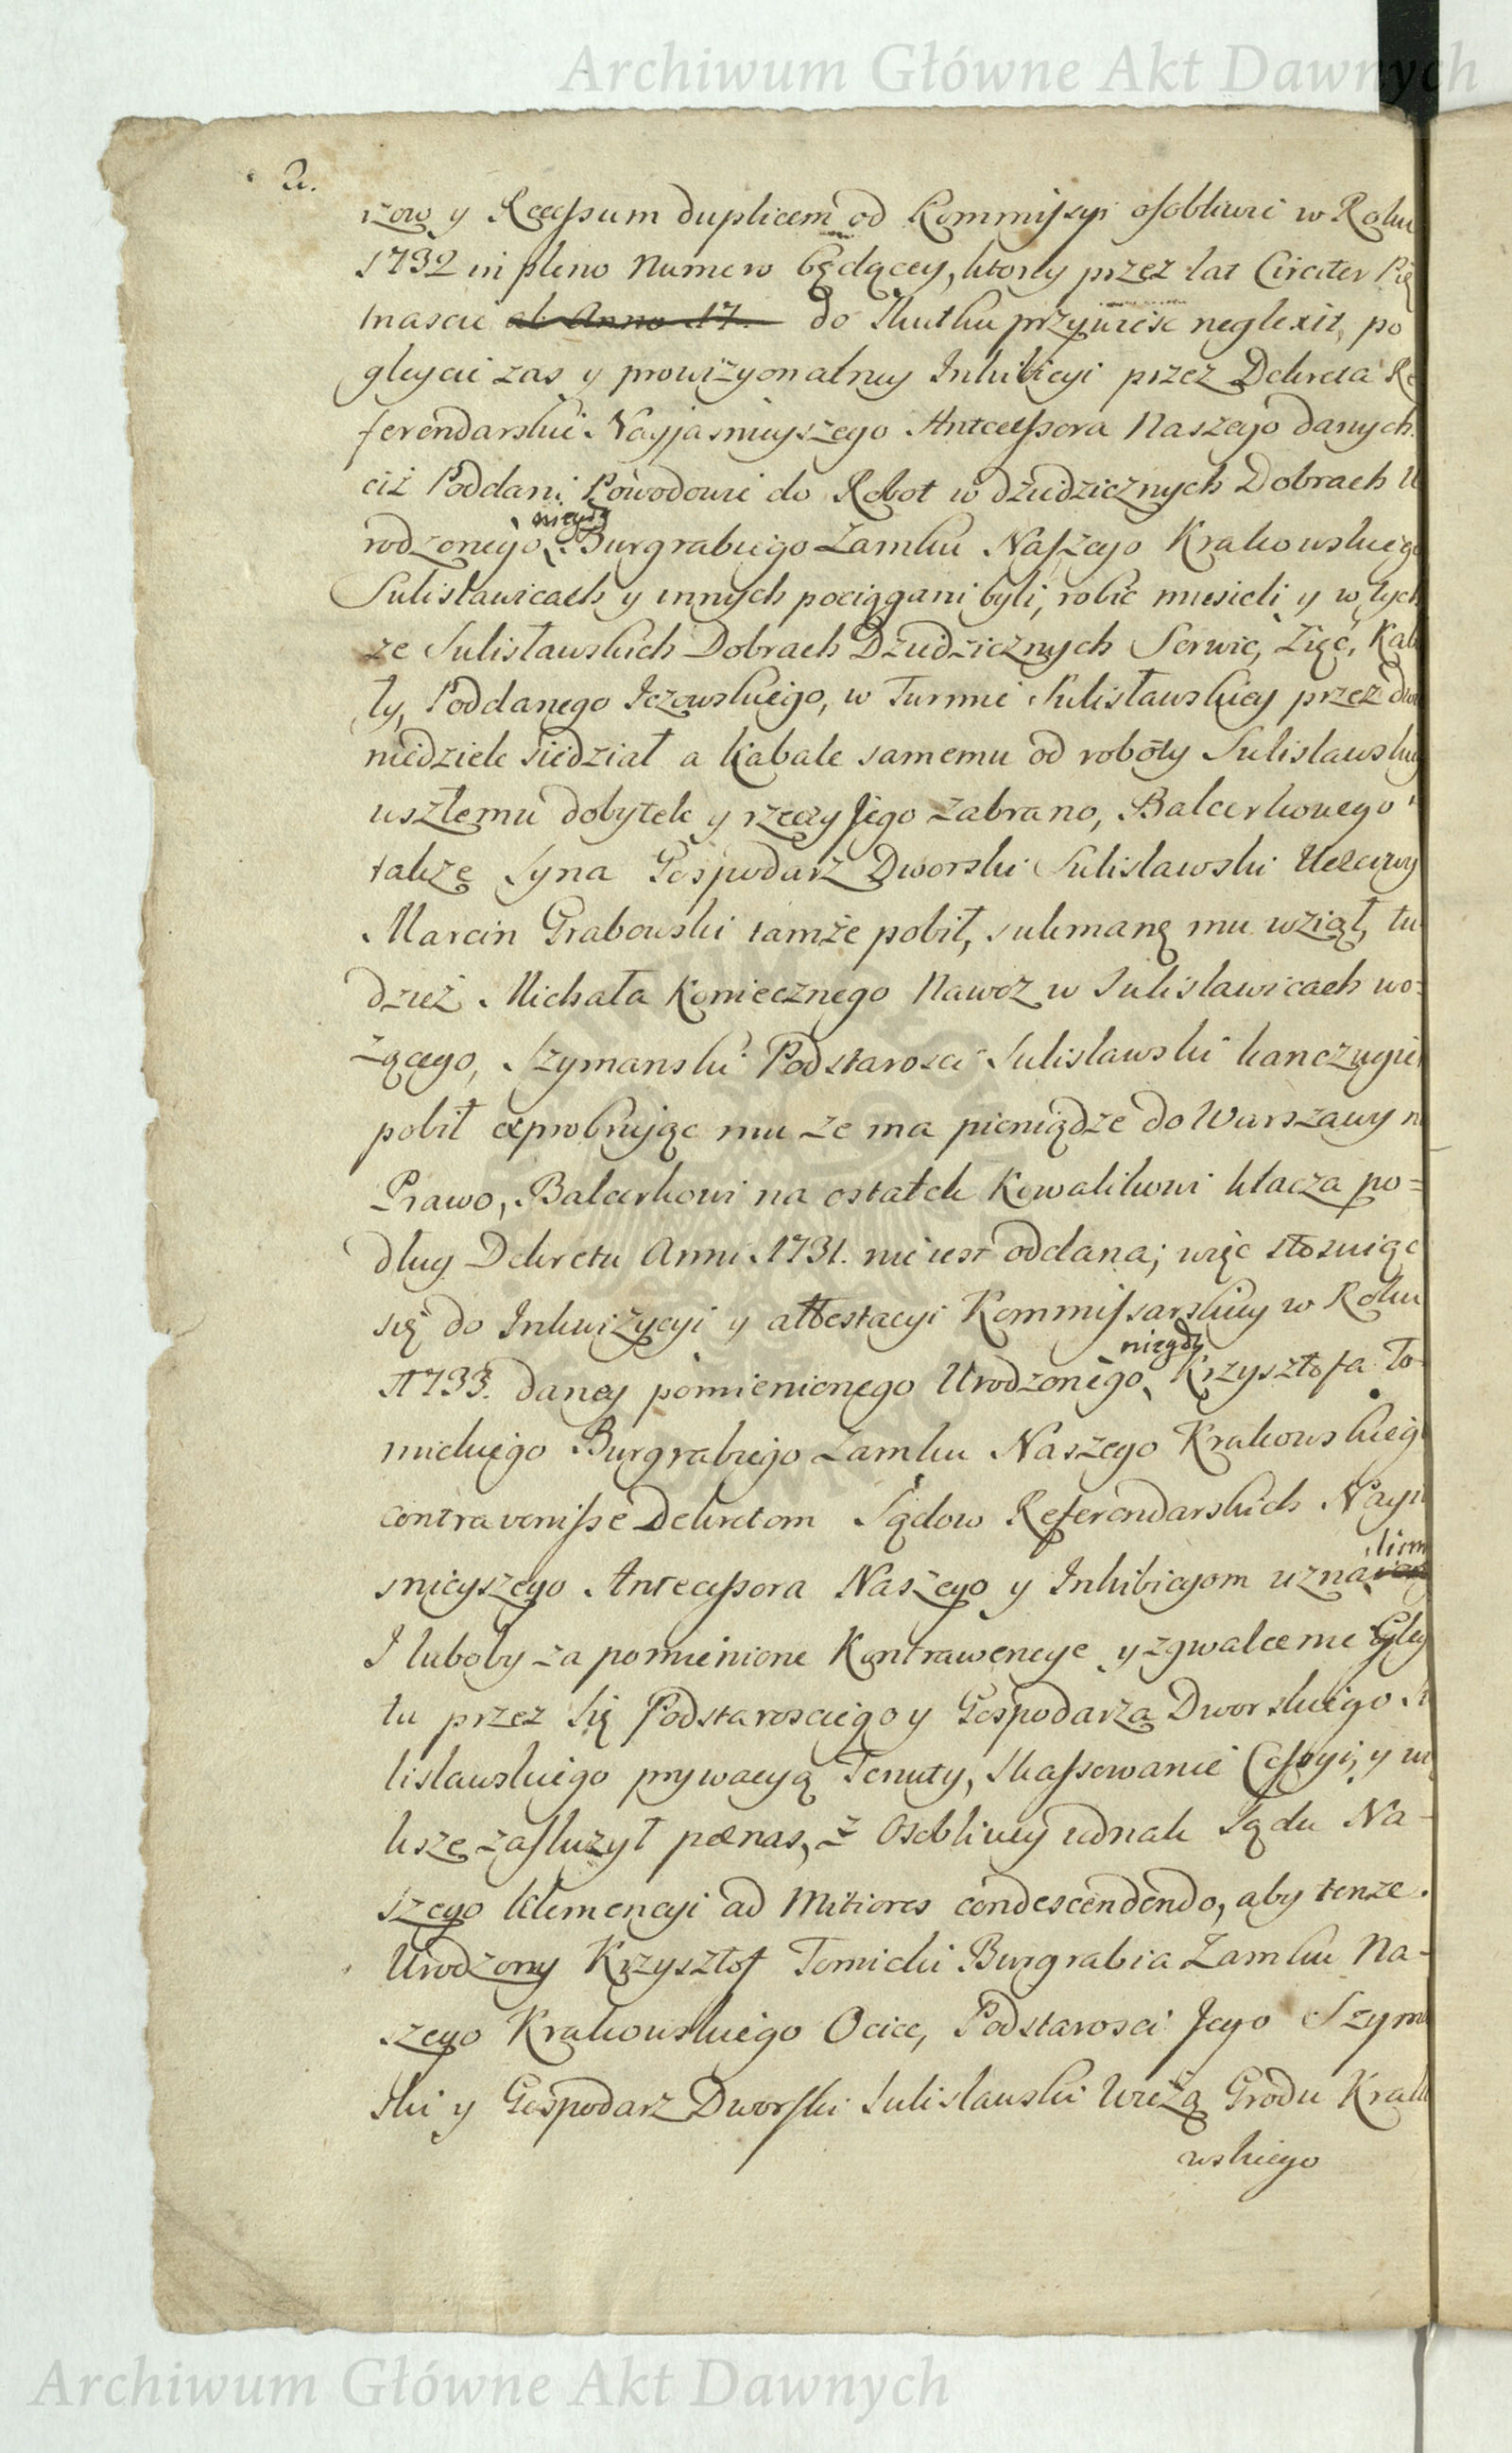 Archiwum Główne Akt Dawnych
2.
rzow y Recessum duplicem od Kommissyi osobliwie w Roku
1732 in pleno Numero będącey, ktory przez lat Circiter Pię
tnascie ab Anno 17 do Skutku przywieść neglexit, po
gleycie zas y prowizyonalney Inhibicyi przez Dekreta Re
ferendarskie Nayjasnieyszego Antcessora Naszego danych
ciż Poddani Powodowie do Robot w dziedzicznych Dobrach U
rodzonego niegdy Burgrabiego Zamku Naszego Krakowskiego
Sulisławicach y innych pociągani byli, robić musieli y w tych
ze Sulisławskich Dobrach Dziedzicznych Serwic, Zięć, Kaba
ły, Poddanego Jczowskiego, w Turmie Sulisławskiey przez dwie
niedziele siedział a Kabale samemu od roboty Sulislawskiey
uszłemu dobytek y rzeczy Jego zabrano, Balcerkowego
także Syna Gospodarz Dworski Sulislawski Uczciwy
Marcin Grabowski tamże pobił, sukmanę mu wziął, tu
dzież Michała Koniecznego Nawoz w Sulislawicach wo=
żącego, Szymanski Podstarosci Sulislawski kanczugiem
pobił exprobrując mu ze ma pieniądze do Warszawy n
Prawo, Balcerkowi na ostatek Kowalikowi klacza po=
dług Dekretu Anni 1731. nie iest oddana; więc stosuiąc
się do Inkwizycyi y attestacyi Kommissarskiey w Roku
1733. daney pomienionego Urodzonego niegdy Krzysztofa To
mickiego Burgrabiego Zamku Naszego Krakowskiego
contravenisse Dekretom Sądow Referendarskich Nayia
snieyszego Antecessora Naszego y Inhibicyom uzna liśm
I luboby za pomienione Kontrawencye y zgwałcenie Gley
tu przez Się Podstarosciego y Gospodarza Dworskiego Su
lislawskiego prywacyą Tenuty, skassowanie Cessyi, y wię
ksze zasłużył pœnas, z Osobliwey iednak Sądu Na-
szego Klemencyi ad Mitiores condescendendo, aby tenze
Urodzony Krzysztof Tomicki Burgrabia Zamku Na-
szego Krakowskiego Ociec, Podstarosci Jego Szyma
ski y Gospodarz Dworski Sulislawski Wieżą Grodu Krako
wskiego
Archiwum Główne Akt Dawnych